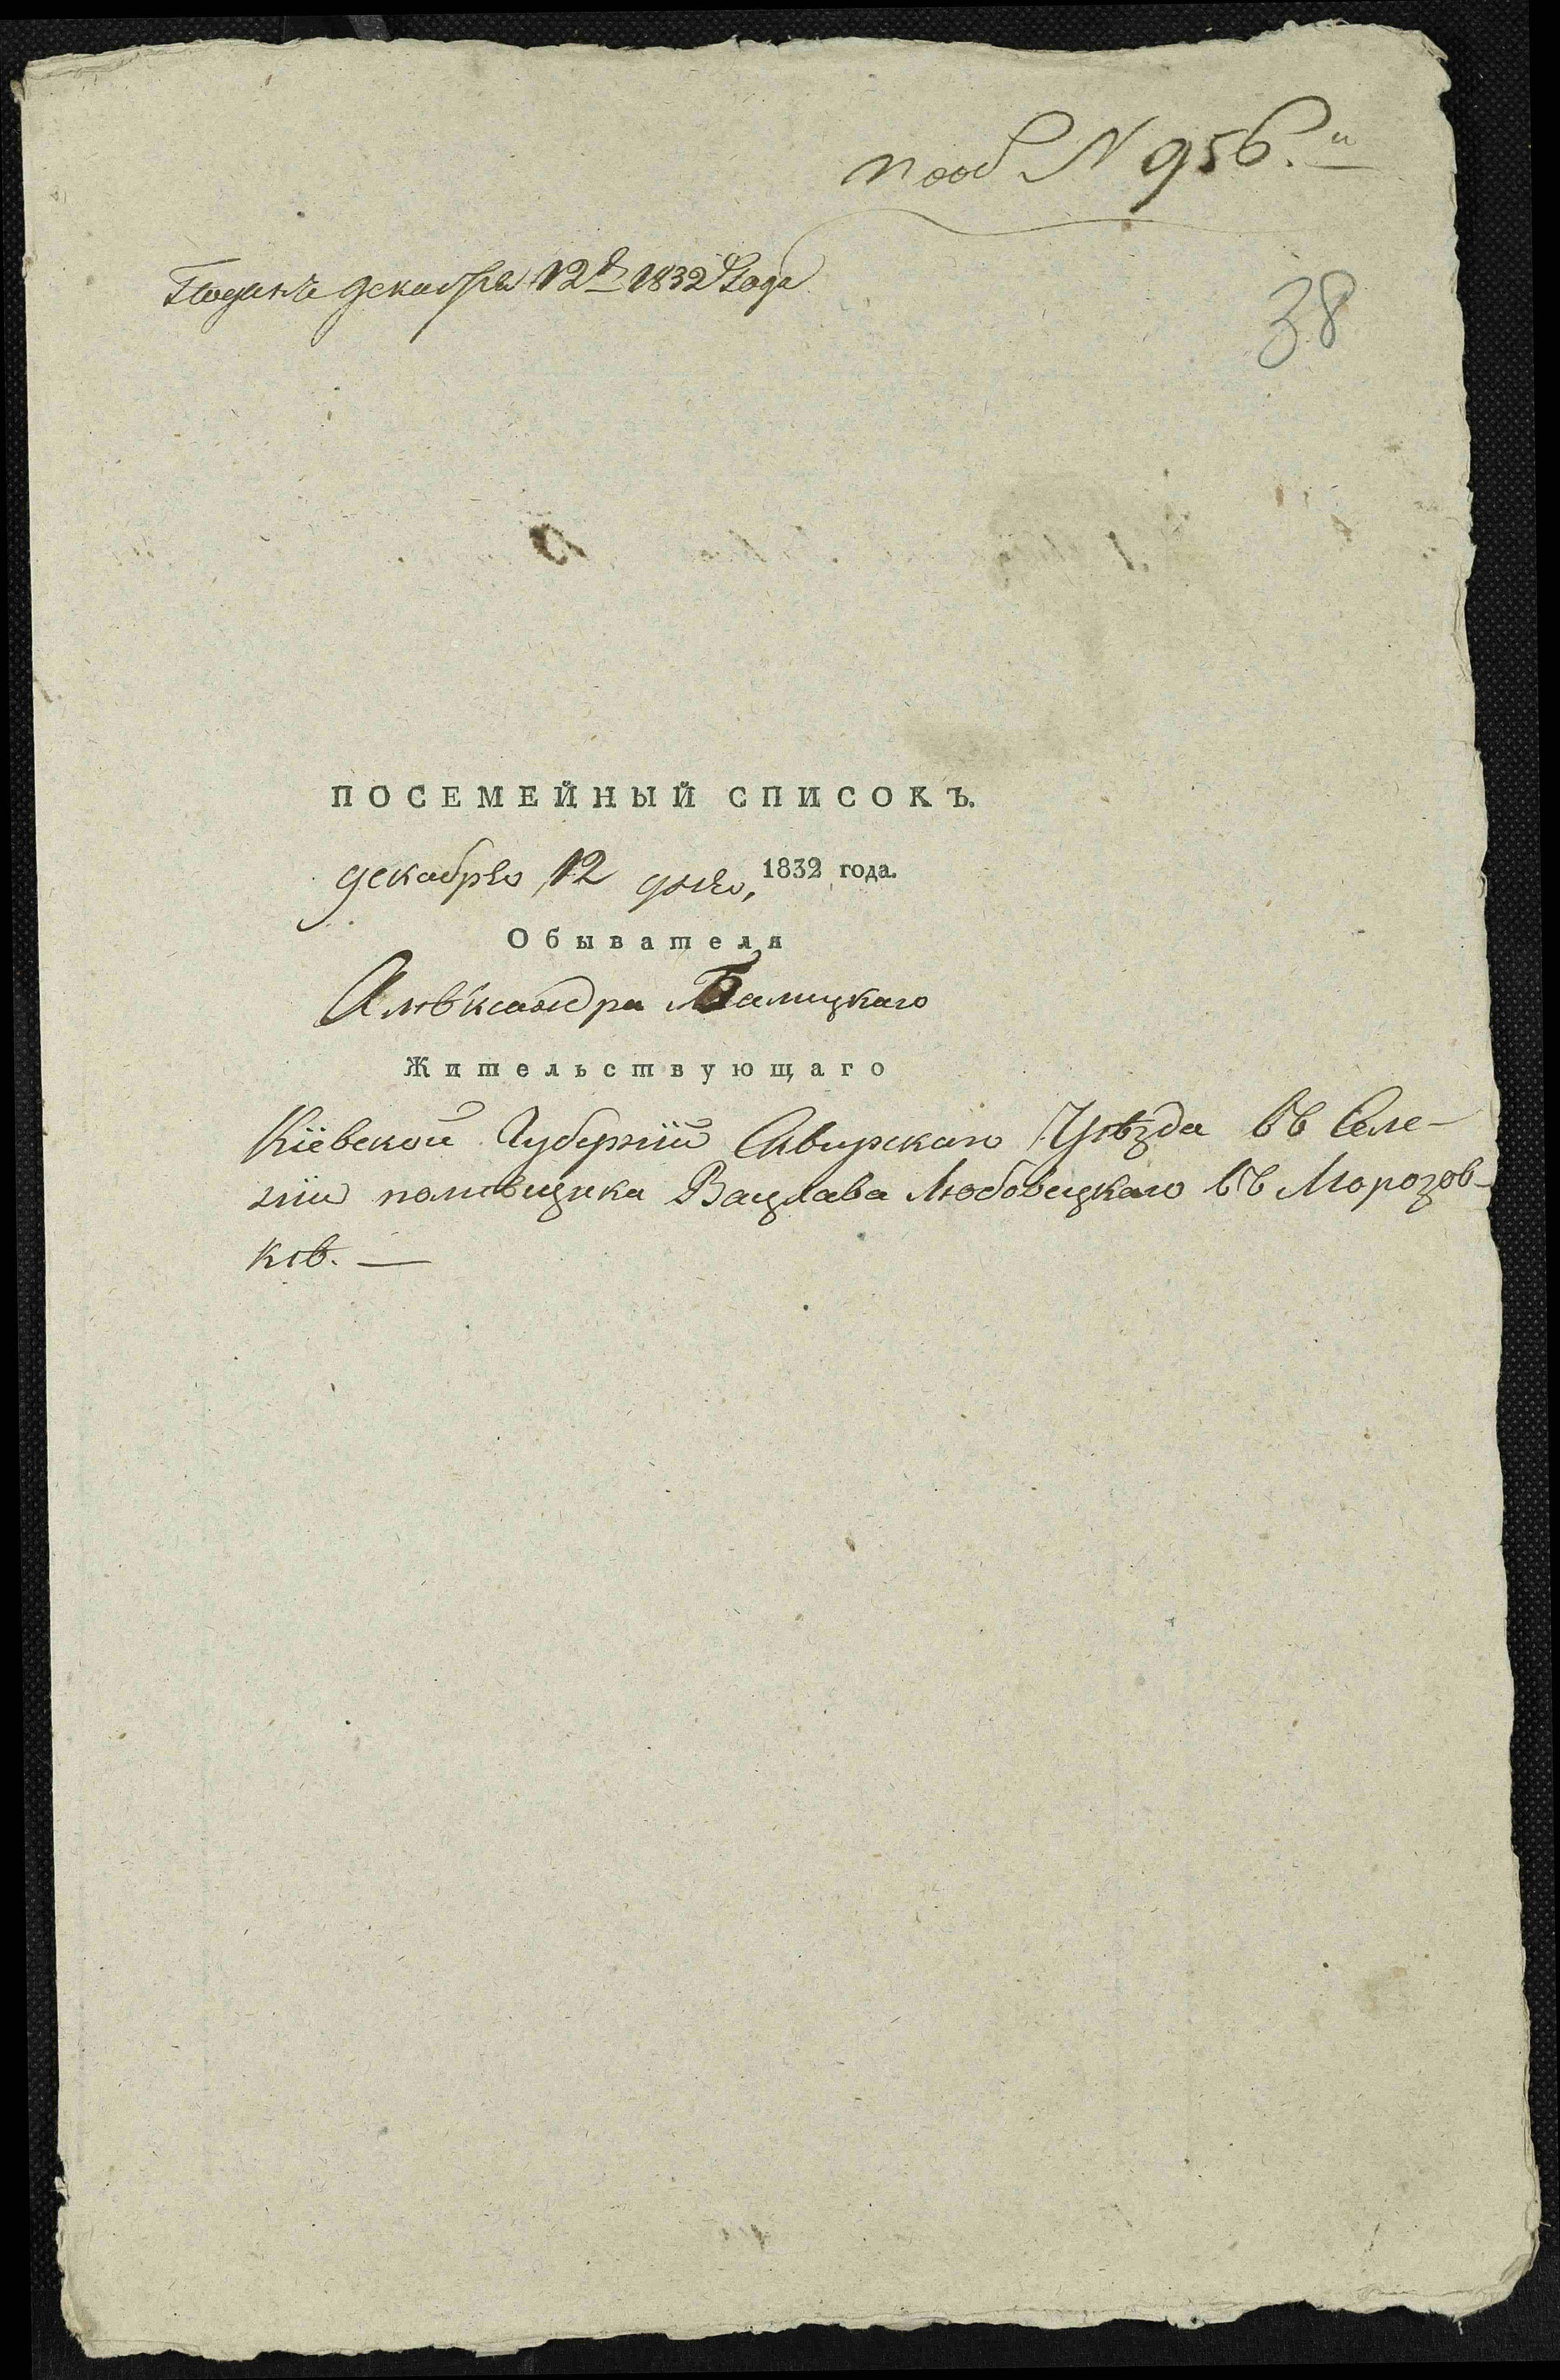 по об № 956.
Поданъ декабря 12 д 1832 Года
38
ПОСЕМЕЙНЫЙ СПИСОКЪ.
декабря 12 дня, 1832 года.
Обывателя
Алѣксандра Балицкаго
Жительствующаго
Кіевской Губерніи Сквирскаго Уѣзда въ Селе-
ніи помѣщика Вацлава Любовецкаго въ Морозов-
кѣ. —